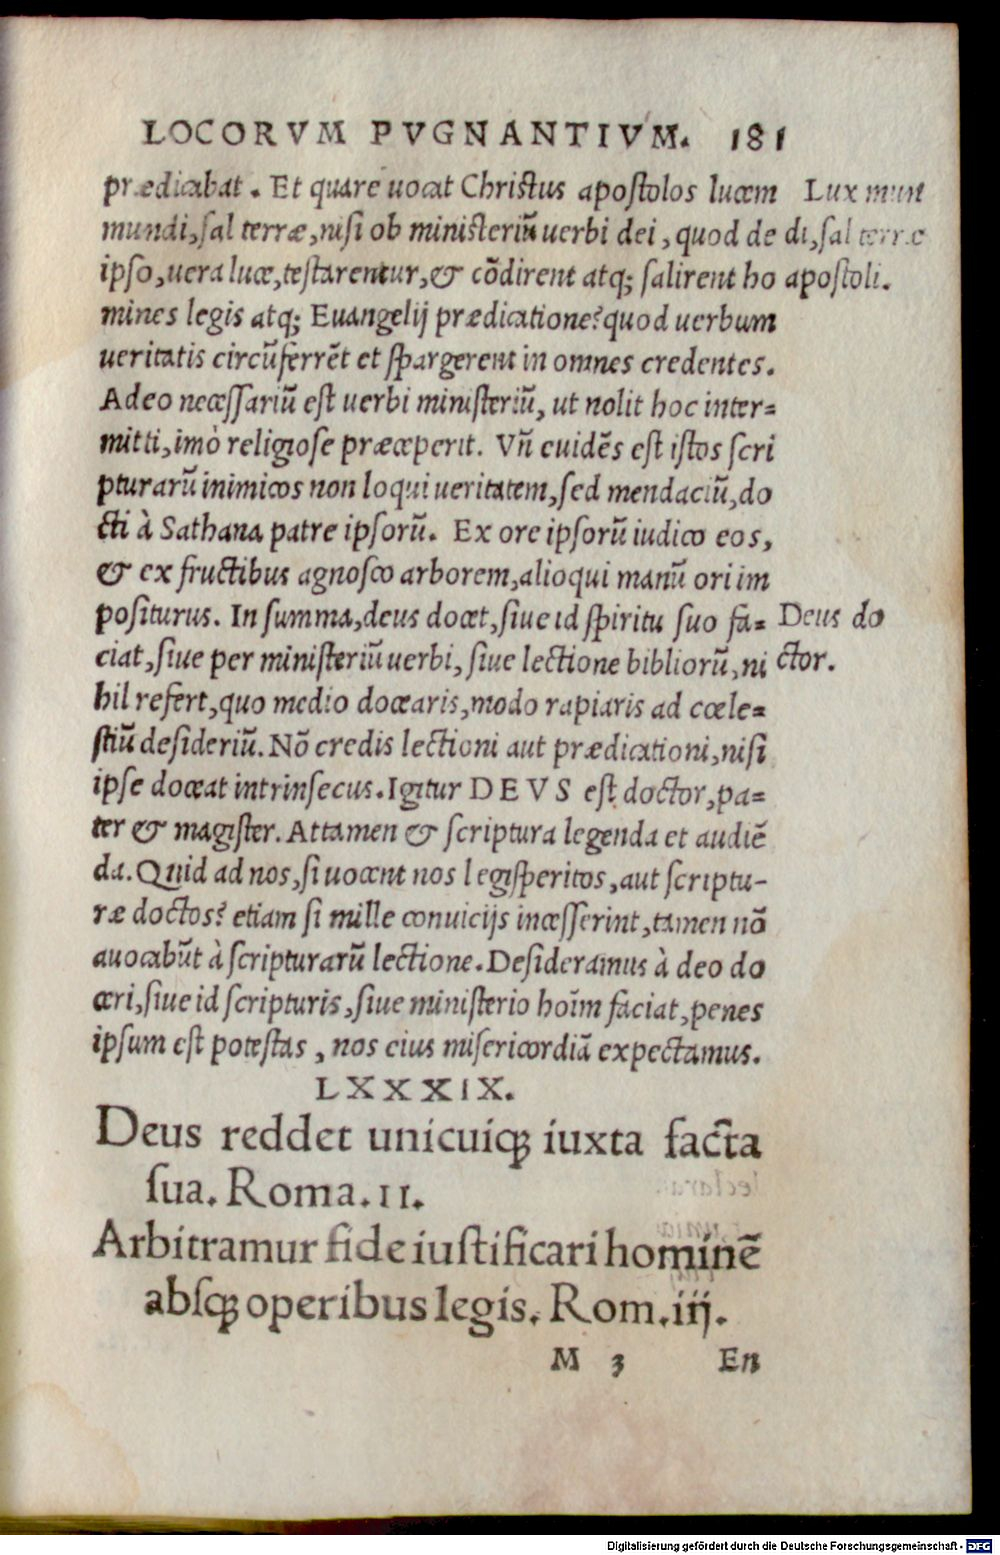 LOCORVM PVGNANTIVM. 181
prædicabat. Et quare uocat Christus apostolos lucem
mundi, sal terræ, nisi ob ministeriũ uerbi dei, quod de
ipso, uera luce, testarentur, & cõdirent atq; salirent ho
mines legis atq; Euangelij prædicatione? quod uerbum
ueritatis circũferrẽt et spargerent in omnes credentes.
Adeo necessariũ est uerbi ministeriũ, ut nolit hoc inter=
mitti, imò religiose præceperit. Vñ euidẽs est istos scri
pturarũ inimicos non loqui ueritatem, sed mendaciũ, do
cti à Sathana patre ipsorũ. Ex ore ipsorũ iudico eos,
& ex fructibus agnosco arborem, alioqui manũ ori im
positurus. In summa, deus docet, siue id spiritu suo fa=
ciat, siue per ministeriũ uerbi, siue lectione bibliorũ, ni
hil refert, quo medio docearis, modo rapiaris ad cœle=
stiũ desideriũ. Nõ credis lectioni aut prædicationi, nisi
ipse doceat intrinsecus. Igitur DEVS est doctor, pa=
ter & magister. Attamen & scriptura legenda et audiẽ
da. Quid ad nos, si uocent nos legisperitos, aut scriptu-
ræ doctos? etiam si mille conuicijs incesserint, tamen nõ
auocabũt à scripturarũ lectione. Desideramus à deo do
ceri, siue id scripturis, siue ministerio hoĩm faciat, penes
ipsum est potestas, nos eius misericordiã expectamus.
Lux mun
di, sal terræ
apostoli.
Deus do
ctor.
LXXXIX.
Deus reddet unicuiq; iuxta facta
sua. Roma. 11.
Arbitramur fide iustificari hominẽ
absq; operibus legis. Rom. iij.
M 3 En
Digitalisierung gefördert durch die Deutsche Forschungsgemeinschaft - DFG